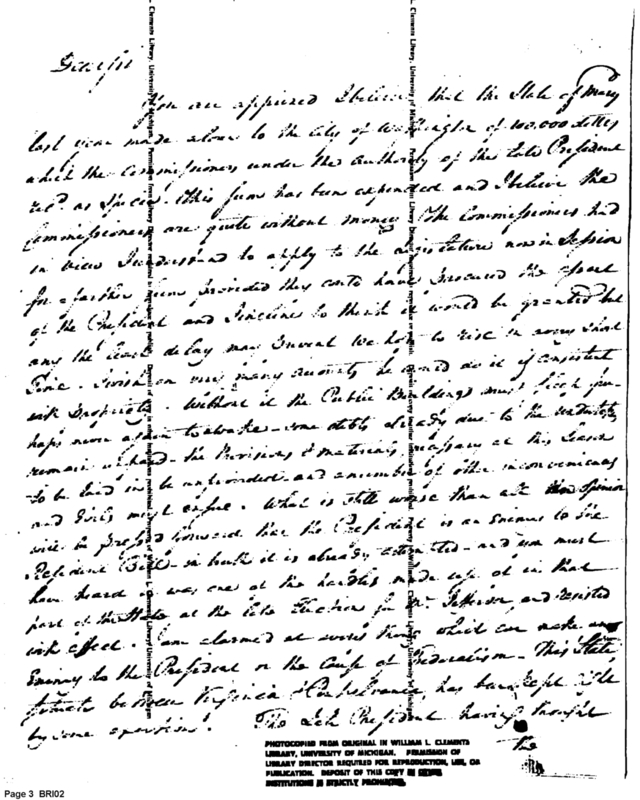 Dear Sir
You are apprised I believe that the State of Mary
last year made a loan to the City of Washington of 100.000 dollars
which the Commissioners under the authority of the late President
recd. as Specie. This sum has been expended and I believe the
Commissioners are quite without money. The Commissioners had
in view I understand to apply to the Legislature now in Session
for a farther sum provided they could have procured the assent
of the President and I incline to think it would be granted but
any the least delay may prevent we hope to rise in a very short
Time. I wish on very many accounts he would do it if consistent
with propriety. Without it the Public Buildings must sleep per
haps never again to awake some debts already due to the undertakers
remain unpaid the Provisions & materials necessary at this Season
to be laid in be unprovided and a number of other inconveniences
and Evils must ensue. What is still worse than all the opinion
will be pressed forward that the President is an Enemy to the
Residence Bill in truth it is already and you must
have heard it was one of the handles made use of in that
part of the State at the late Election for Mr. Jefferson, and resisted
with effect. I am alarmed at every thing which can make an
Enemy to the President or the Cause of Federalism. This State
situate between Virginia & Pensylvania has been kept right
by some exertions. The late President having thought
the
Clements Library, University of Michigan.
PHOTOCOPIED FROM ORIGINAL IN WILLIAM L. CLEMENTS
LIBRARY, UNIVERSITY OF MICHIGAN. PERMISSION OF
LIBRARY DIRECTOR REQUIRED FOR REPRODUCTION, USE, OR
PUBLICATION. DEPOSIT OF THIS COPY IN OTHER
INSTITUTIONS IS STRICTLY PROHIBITED.
Page 3 BRI02